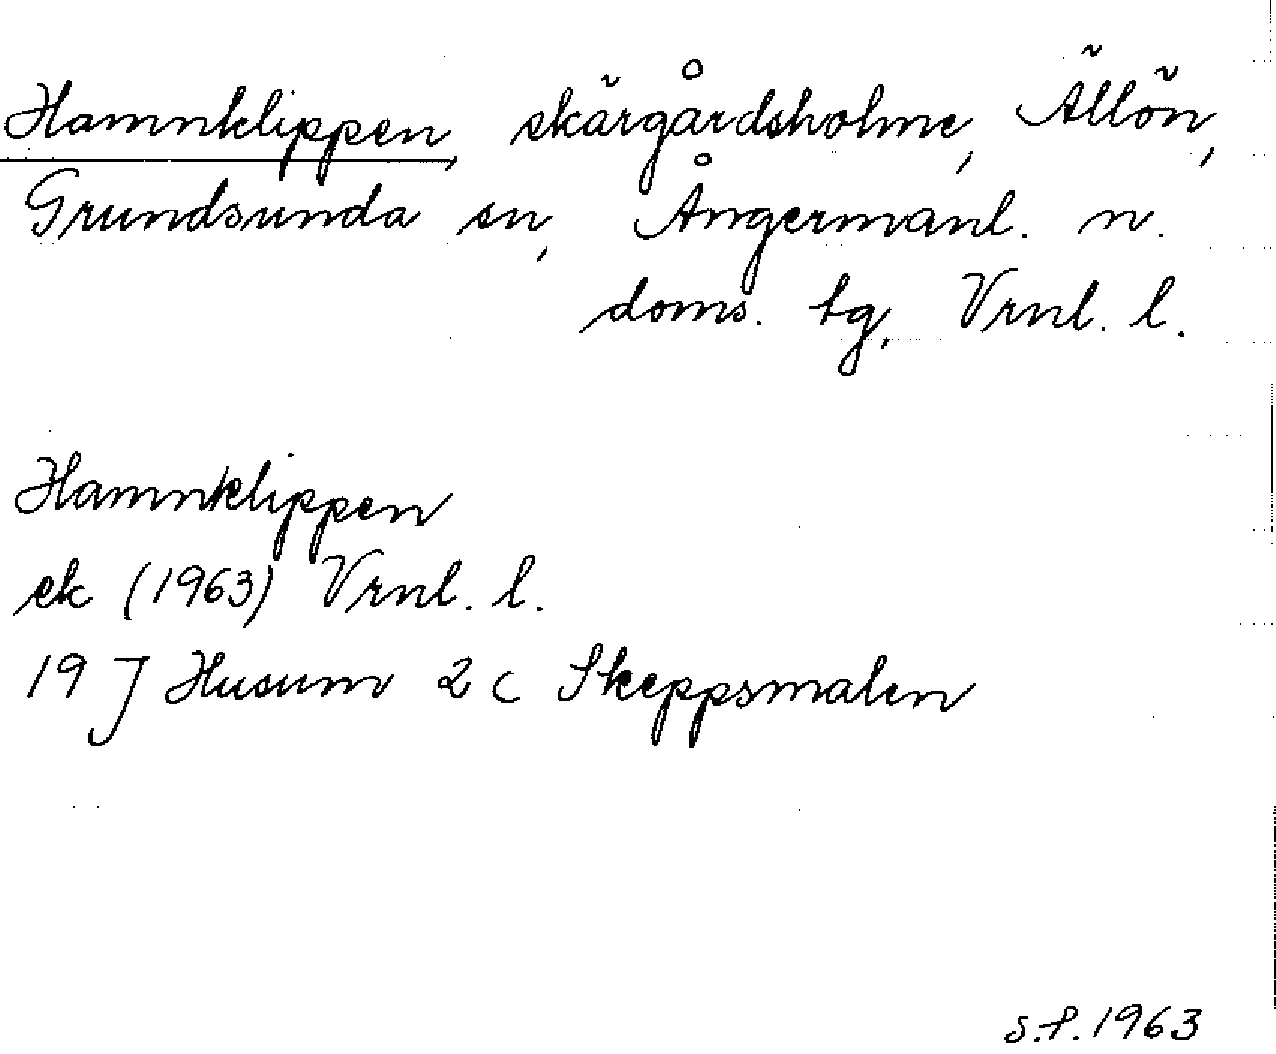 Hamnklippen, skärgårdsholme, Ällön,
Grundsunda sn, Ångermanl. n.
doms. tg, Vrnl. l.
Hamnklippen
ek (1963) Vrnl. l.
19 J Husum 2 c Skeppsmalen
S.P. 1963